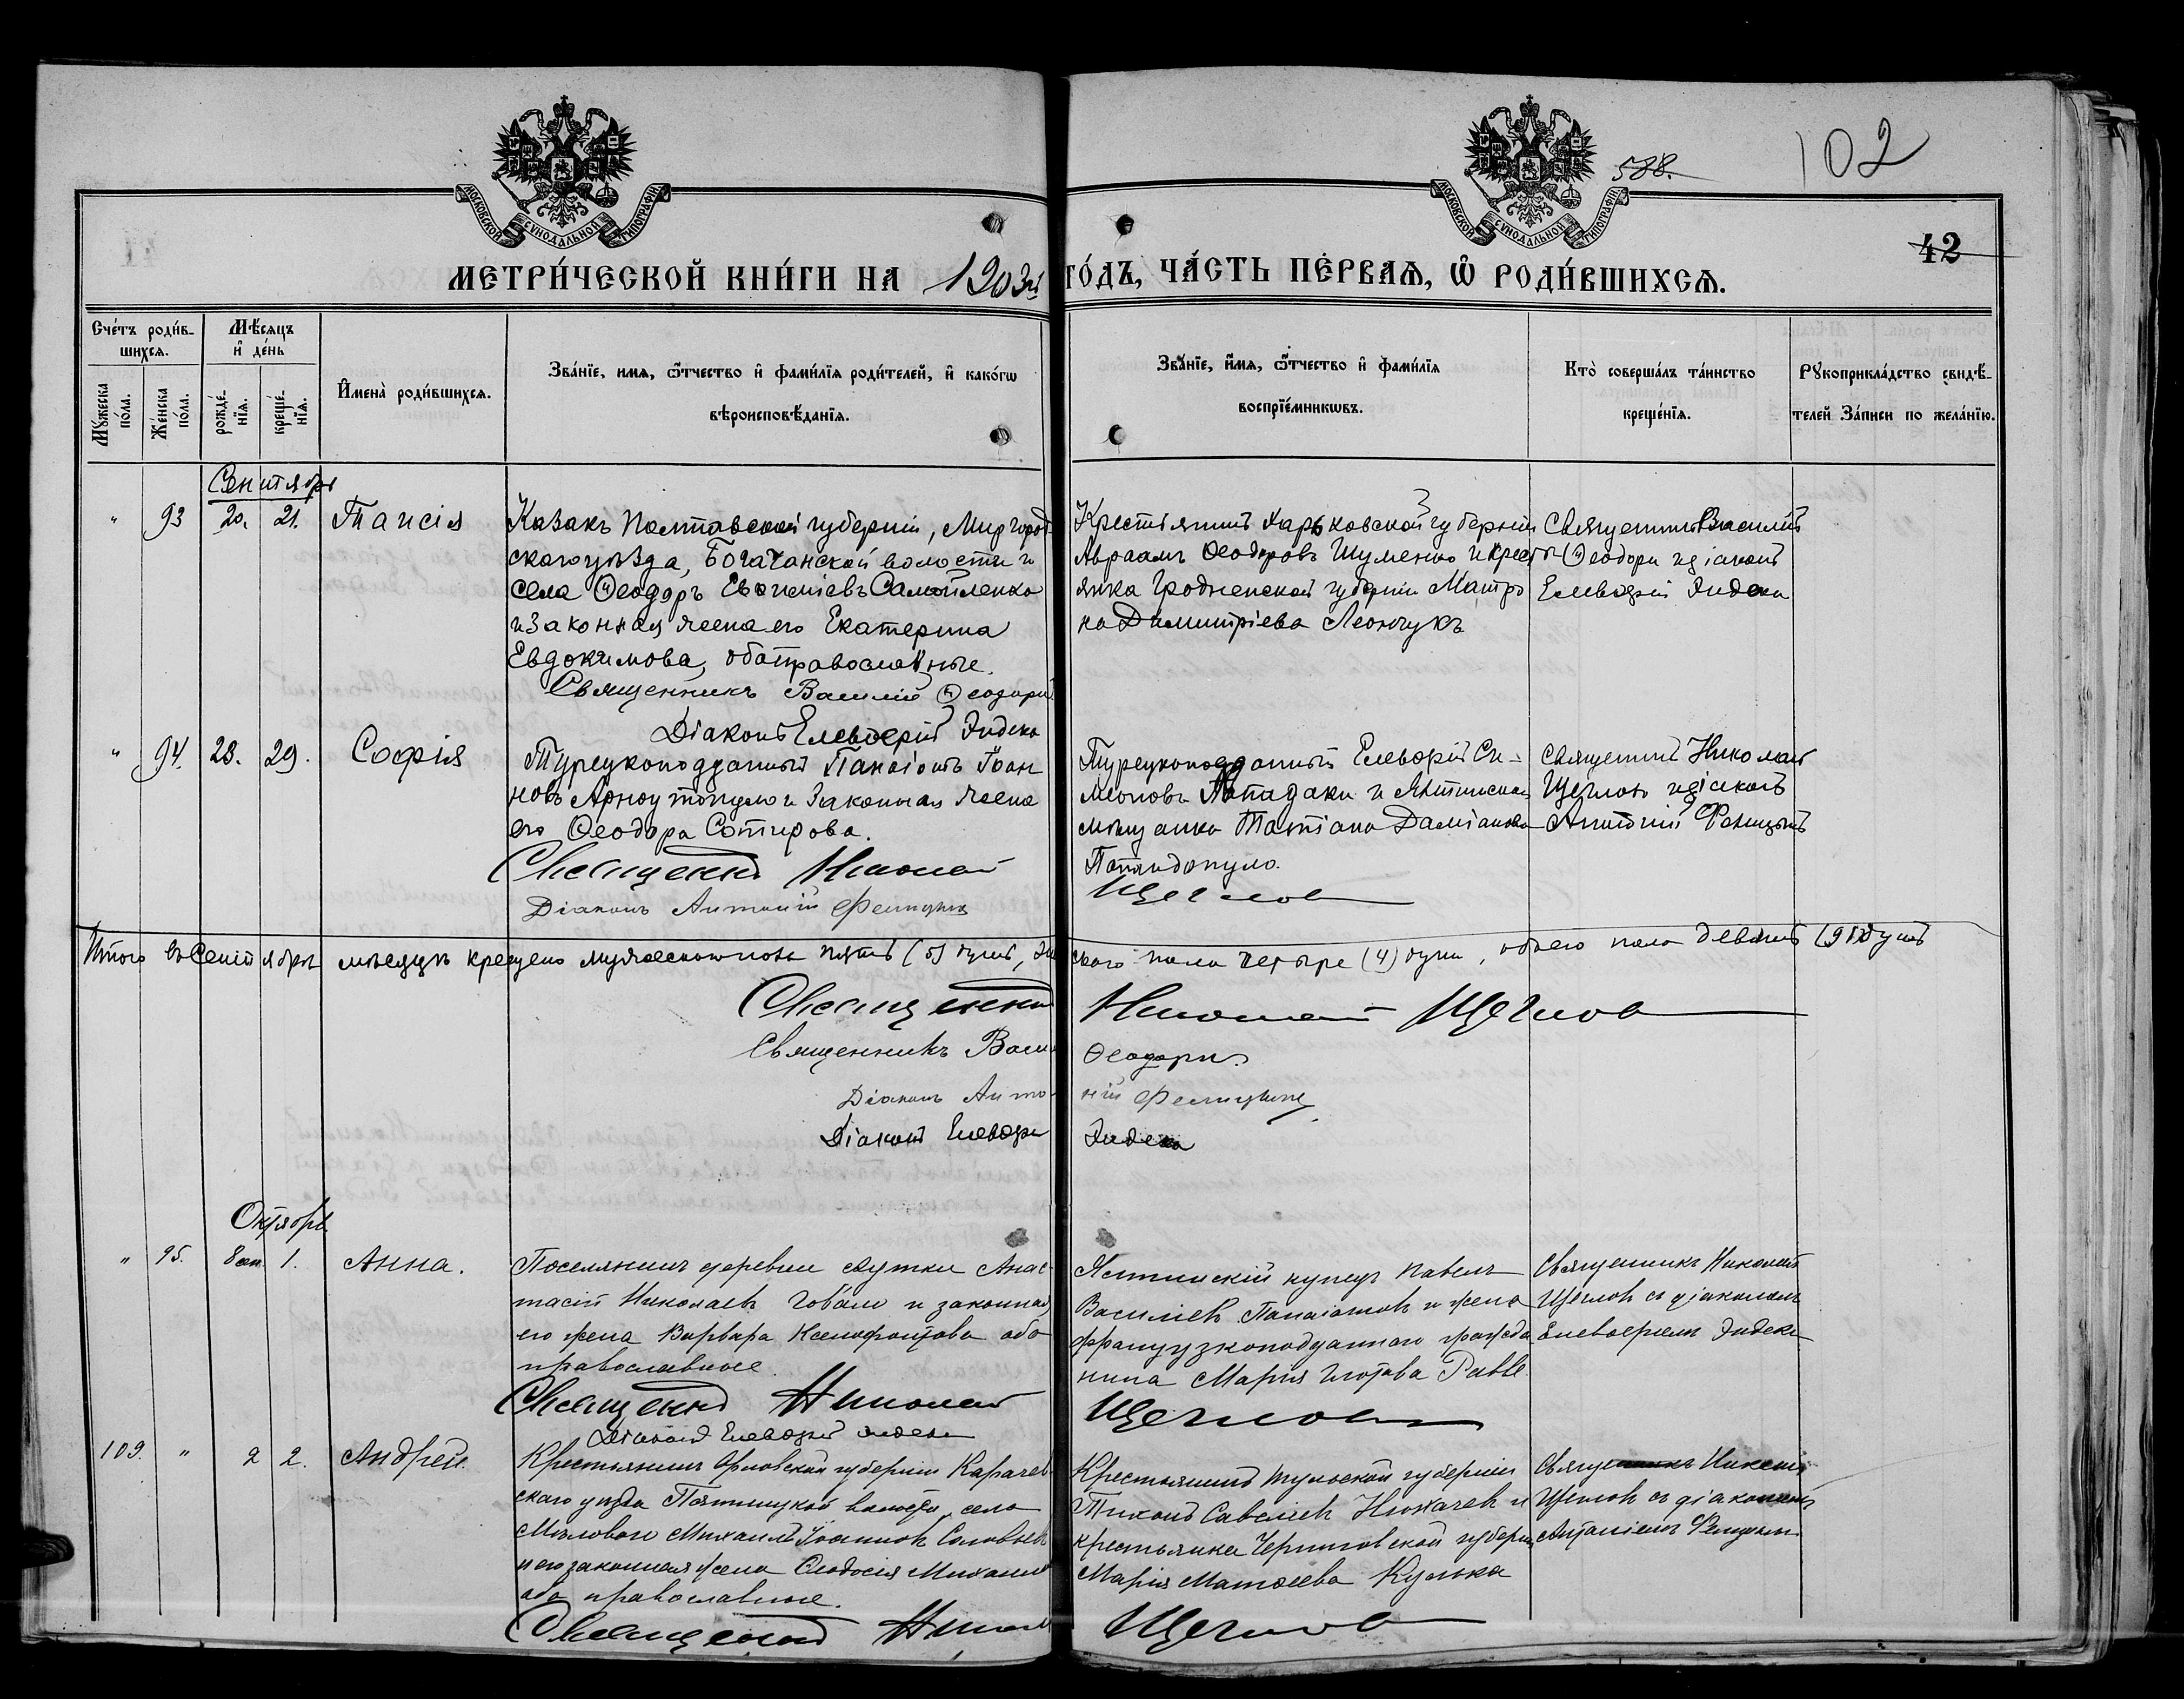 МОСКОВСКОЙ СѴНОДАЛЬНОЙ ТИПОГРАФІИ
МОСКОВСКОЙ СѴНОДАЛЬНОЙ ТИПОГРАФІИ
588.
102
42
МЕТРИ́ЧЕСКОЙ КНИ́ГИ НА 1903й ГО́ДЪ, ЧА́СТЬ ПЕ́РВАѦ, Ѿ РОДИ́ВШИХСѦ.
Сче́тъ роди́в-
шихсѧ.
Мѣ́сѧцъ
и҆ де́нь
Мꙋ́жеска по́ла.
Же́нска по́ла.
рожде́-нїѧ.
креще́-нїѧ.
И҆мена̀ роди́вшихсѧ.
Зва́нїе, имѧ, ѻ҆́тчество и҆ фами́лїѧ роди́телей, и҆ како́гѡ
вѣроисповѣ́данїѧ.
Зва́нїе, и҆́мѧ, ѻ҆́тчество и҆ фами́лїѧ
воспрїе́мникѡвъ.
Кто̀ соверша́лъ та́инство
креще́нїѧ.
Рꙋкоприкла́дство свидѣ́-
телей За́писи по жела́нїю.
Сентябрь
" 93 20. 21. Таисія
Казакъ Полтавской губерніи, Миргород-
скаго уѣзда, Богачанской волости и
села Ѳеодоръ Евѳиміевъ Самойленко
и законная жена его Екатерина
Евдокимова, оба православные.
Священникъ Василій Ѳеодори
Діаконъ Елевѳерій Эндека
Крестьянинъ Харьковской губерніи
Авраамъ Ѳеодоровъ Шуменко и крест
янка Гродненской губерніи Матро
на Димитріева Леончукъ
Священникъ Василій
Ѳеодори и діаконъ
Елевѳерій Эндека
" 94. 28. 29. Софія
Турецкоподданный Панаіотъ Іоан
новъ Арноутопуло и законная жена
его Ѳеодора Сотирова.
Священникъ Николай Щегловъ
Діаконъ Антоній Феницынъ
Турецкоподданный Елевѳерій Си-
меоновъ Пападаки и Ялтинская
мѣщанка Татіана Даміанова
Папандопуло.
Священникъ Николай
Щегловъ и діаконъ
Антоній Феницынъ
Итого въ Сентябрѣ мѣсяцѣ крещено мужескаго пола пять (5) душъ, жен
скаго пола четыре (4) души, обоего пола девять (9) душъ
Священникъ Николай Щегловъ
Священникъ Васи Ѳеодори.
Діаконъ Анто-ній Феницынъ
Діаконъ Елевѳери Эндека
Октябрь
" 95. 8 сен. 1. Анна.
Поселянинъ деревни Аутки Анас-
тасій Николаевъ и законная
его жена Варвара Ксенофонтова оба
православные.
Священникъ Николай Щегловъ
Діаконъ Елевѳерій Эндека
Ялтинскій купецъ Павелъ
Васильевъ Панаіотовъ и жена
французкоподданнаго гражда
нина Марія
Священникъ Николай
Щегловъ съ діакономъ
Елевѳеріемъ Эндека
109. " 2 2. Андрей.
Крестьянинъ Орловской губерніи Карачев
скаго уѣзда Пятницкой волости, села
Михаилъ Іоанновъ Соловьевъ
и его законная жена Ѳеодосія Михаил
оба православные.
Священникъ Никол Щегловъ
Крестьянинъ Тульской губерніи
Тихонъ Савельевъ и
крестьянка Черниговской губерни
Марія Матѳеева Кулька
Священникъ Николай
Щегловъ съ діакономъ
Антоніемъ Феницынъ